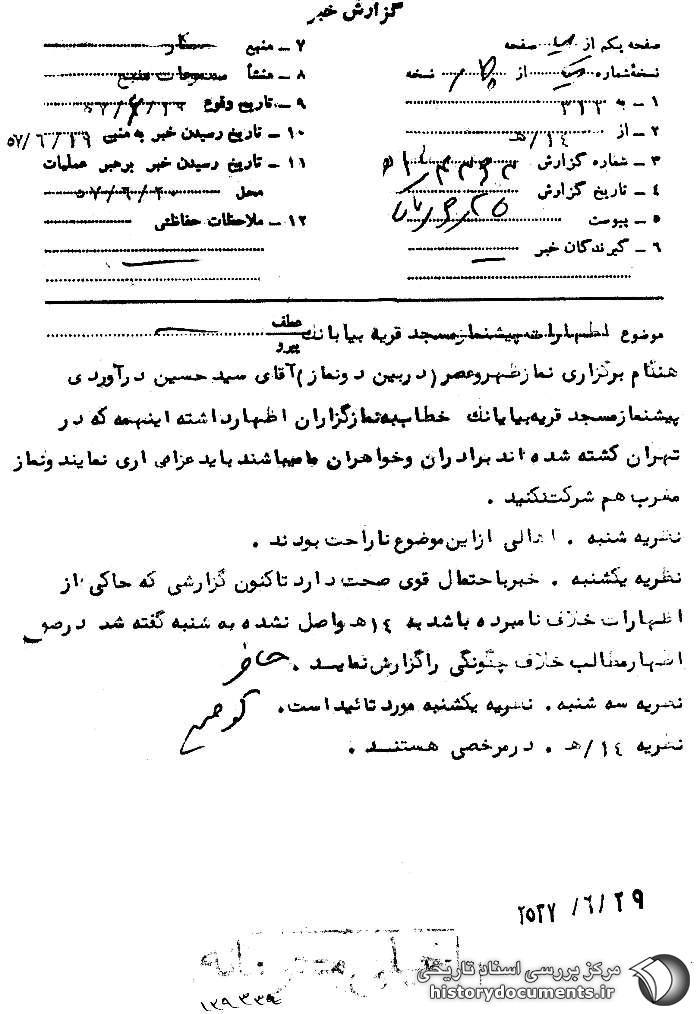 گزارش خبر
صفحه یکم از صفحه
نسخه شماره از نسخه
۱ – به ۳۱۲
۲ – از ۱۴/هـ
۳ – شماره گزارش
۴ – تاریخ گزارش
۵ – پیوست
۶ – گیرندگان خبر
۷ – منبع
۸ – منشأ مسموعات منبع
۹ – تاریخ وقوع
۱۰ – تاریخ رسیدن خبر به منبع ۵۷/۶/۱۹
۱۱ – تاریخ رسیدن خبر برهبر عملیات
محل ۵۷/۶/۲۰
۱۲ – ملاحظات حفاظتی
موضوع اظهارات پیشنماز مسجد قریه بیابانك عطف
پیرو
هنگام برگزاری نماز ظهر و عصر (در بین دو نماز) آقای سید حسین در آوردی
پیشنماز مسجد قریه بیابانك خطاب به نمازگزاران اظهار داشته اینهمه که در
تهران کشته شده اند برادران و خواهران ما میباشند باید عزاداری نمایند و نماز
مغرب هم شرکت نکنید .
نظریه شنبه . اهالی از این موضوع ناراحت بودند .
نظریه یکشنبه . خبر با احتمال قوی صحت دارد تاکنون گزارشی که حاکی از
اظهارات خلاف نامبرده باشد به ۱۴ هـ واصل نشده به شنبه گفته شد در صورت
اظهار مطالب خلاف چگونگی را گزارش نماید .
نظریه سه شنبه . نظریه یکشنبه مورد تائید است .
نظریه ۱۴/هـ . در مرخصی هستند .
۲۵۳۷/۶/۲۹
۱۲۹۳۳۹
مرکز بررسی اسناد تاریخی
historydocuments.ir